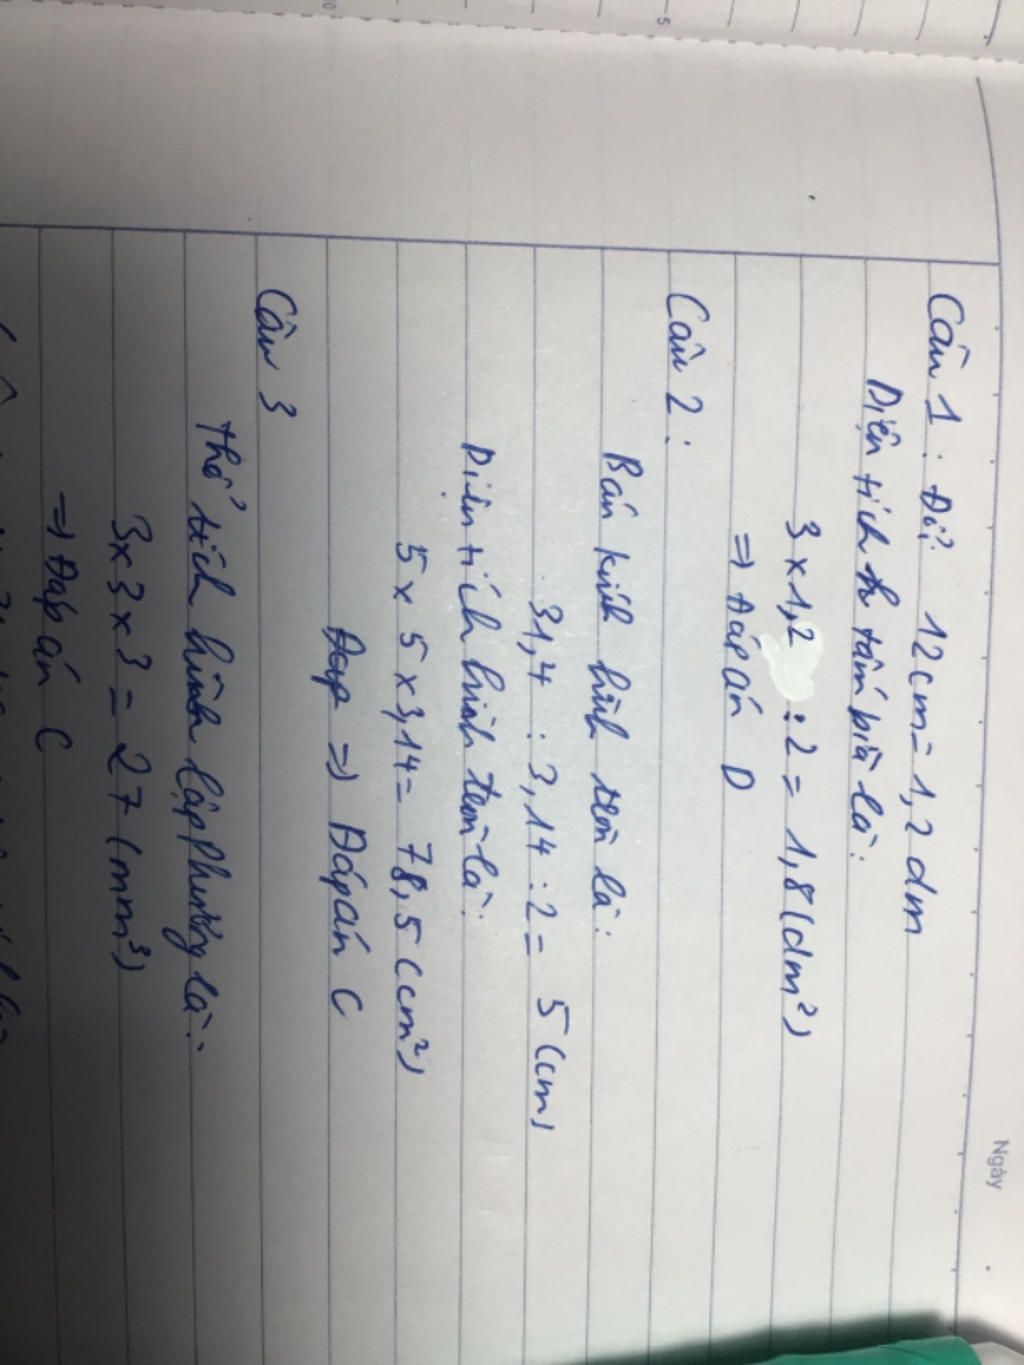 Ngày
5
Câu 1 : Đổi 12cm = 1,2 dm
Diện tích tấm bìa là:
3 x 1,2 : 2 = 1,8 (dm²)
=> Đáp án D
Câu 2 :
Bán kính hình tròn là:
31,4 : 3,14 : 2 = 5 (cm)
Diện tích hình tròn là:
5 x 5 x 3,14 = 78,5 (cm²)
Đap => Đáp án C
Câu 3
Thể tích hình lập phương là:
3 x 3 x 3 = 27 (mm³)
=> Đáp án C